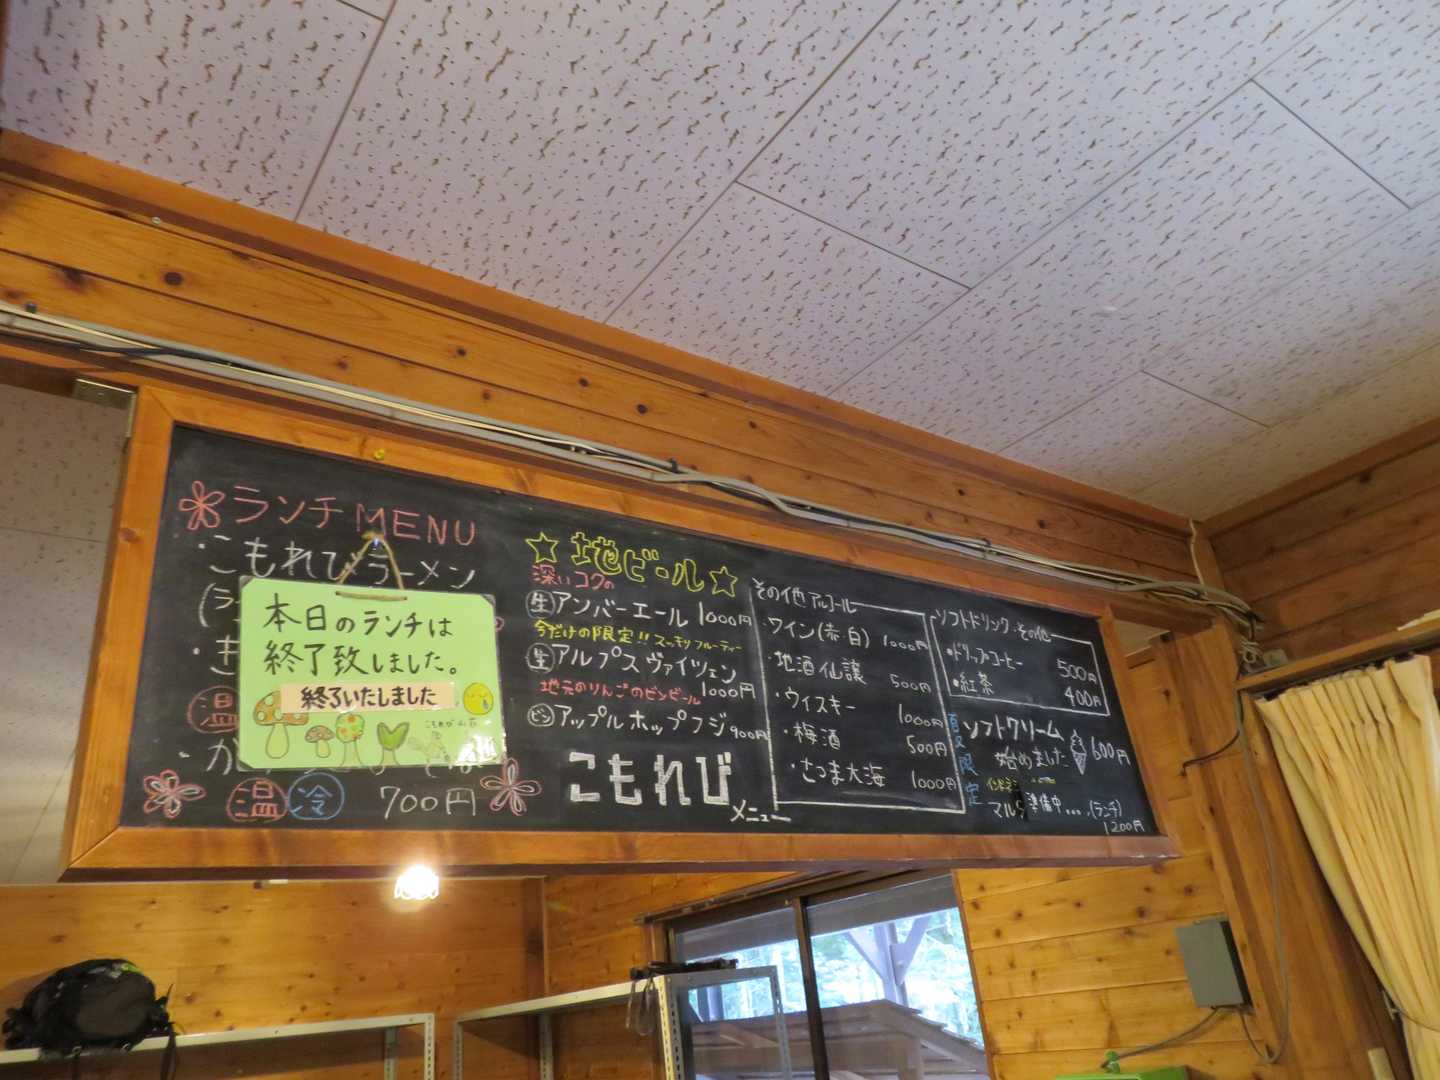 ランチMENU
・こもれびラーメン
(ラ
・き
温
・か
温 冷 700円
本日のランチは
終了致しました。
終了いたしました
こもれび山荘
☆地ビール☆
深いコクの
生 アンバーエール 1000円
今だけの限定!! スッキリフルーティー
生 アルプスヴァイツェン
1000円
地元のりんごのビンビール
ビン アップルホップフジ 900円
こもれび
メニュー
その他アルコール
・ワイン(赤・白) 1000円
・地酒 仙譲 500円
・ウィスキー 1000円
・梅酒 500円
・さつま大海 1000円
ソフトドリンク・その他
・ドリップコーヒー 500円
・紅茶 400円
夏限定
ソフトクリーム
始めました 600円
準備中... (ランチ)
1200円